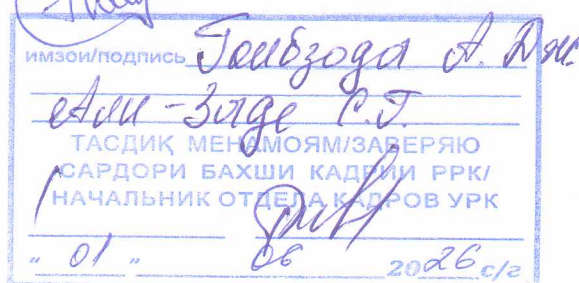 имзои/подпись Гоибзода А. Дж.
Али-Заде С.Г.
ТАСДИҚ МЕНАМОЯМ/ЗАВЕРЯЮ
САРДОРИ БАХШИ КАДРИИ РРК/
НАЧАЛЬНИК ОТДЕЛА КАДРОВ УРК
" 01 " 06 2026 с/г